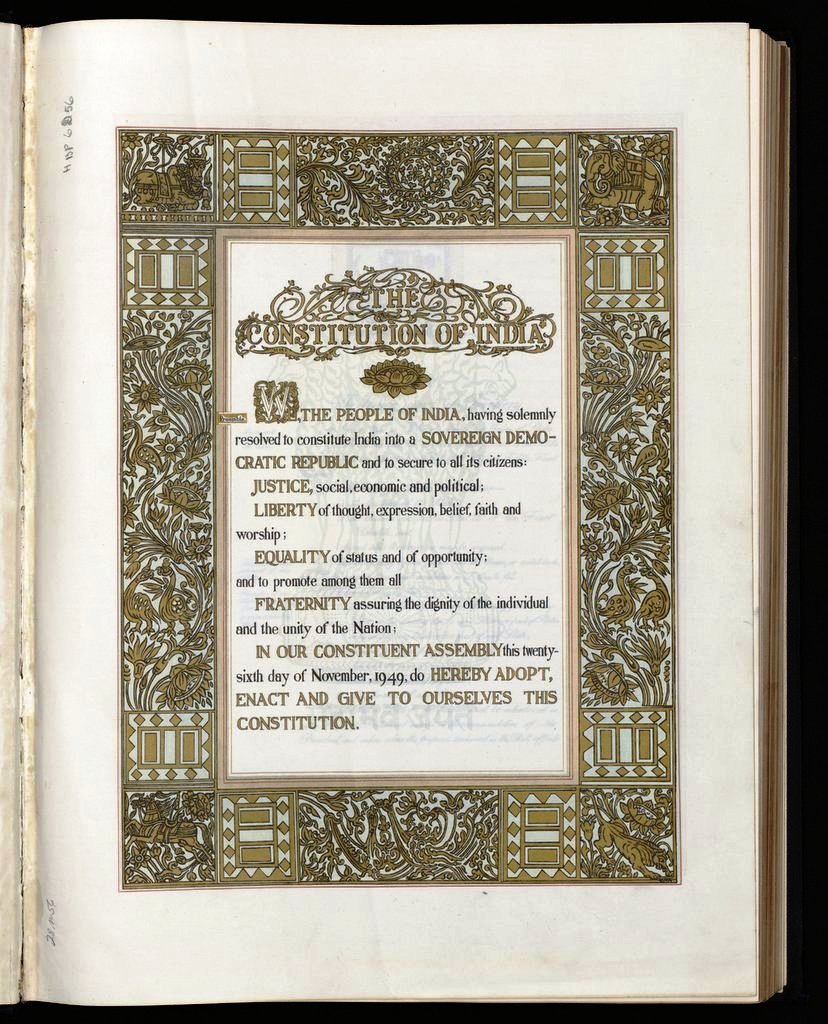 H DP 6 D 56
THE
CONSTITUTION OF INDIA
WE, THE PEOPLE OF INDIA, having solemnly
resolved to constitute India into a SOVEREIGN DEMO-
CRATIC REPUBLIC and to secure to all its citizens:
JUSTICE, social, economic and political;
LIBERTY of thought, expression, belief, faith and
worship;
EQUALITY of status and of opportunity;
and to promote among them all
FRATERNITY assuring the dignity of the individual
and the unity of the Nation;
IN OUR CONSTITUENT ASSEMBLY this twenty-
sixth day of November, 1949, do HEREBY ADOPT,
ENACT AND GIVE TO OURSELVES THIS
CONSTITUTION.